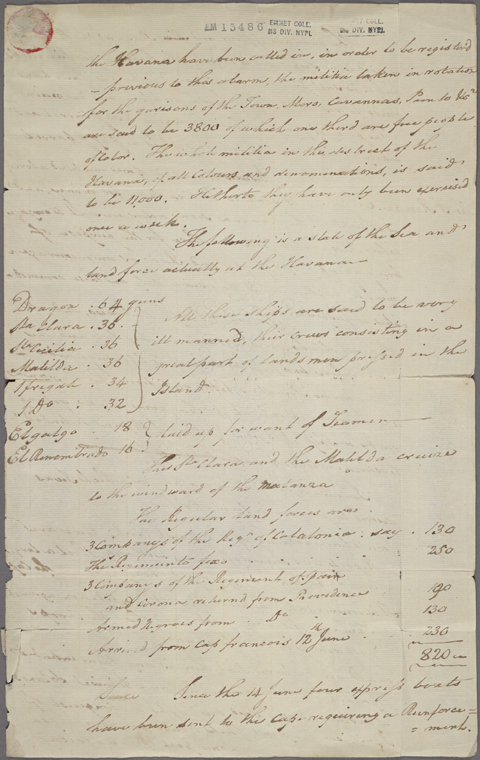 EM 13486
EMMET COLL.
MS DIV. NYPL
COLL.
MS DIV. NYPL
the Havana have been called in, in order to be registered
previous to this alarm, the militia taken in rotation
for the garisons of the Town, Moro, Cavannas, Punto &c.
are said to be 3800 of which one third are free people
of color. The whole militia in the district of the
Havana, of all Colours and denominations, is said
to be 11,000. Hitherto they have only been exercised
once a week.
The following is a state of the Sea and
land force actually at the Havana
Dragon . 64 guns
Sta. Clara . 36
Sta. Cecilia . 36
Matilda . 36
1 fregate . 34
1 Do . 32
All these ships are said to be very
ill manned, their crews consisting in a
great part of lands men pressed in the
Island.
El galgo . 18
El Remembrado 16
laid up for want of Seamen
The Sta. Clara and the Matilda cruize
to the windward of the Matanza
The Regular land forces are
3 Companys of the Regt. of Catalonia . say . 130
The Regimento fixo 250
3 Companys of the Regiment of
and Corona returnd from Providence 190
Armed from Do 130
Arrived from Cap francois 12th June 230
820
Since the 14 June four express boats
have been sent to the Cap. requiring a Reinforce=
=ment.